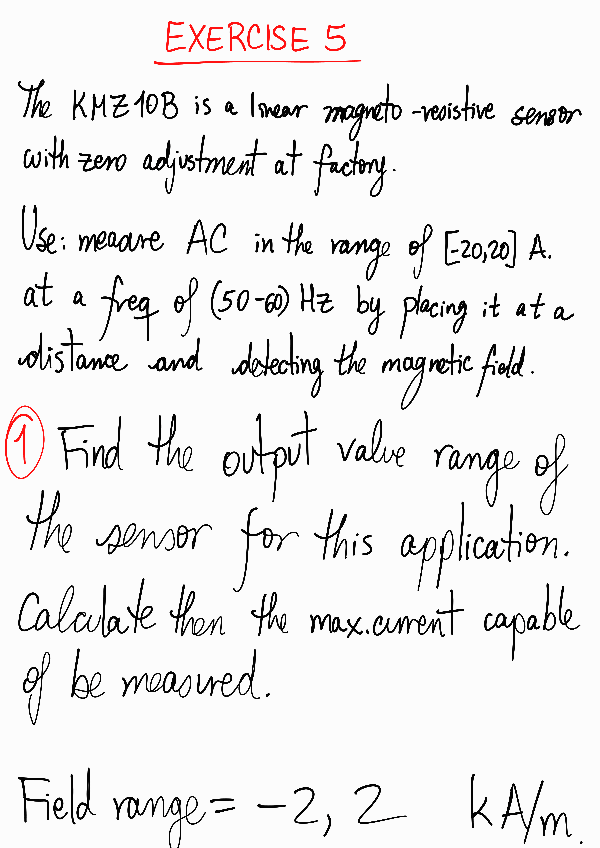 EXERCISE 5
The KMZ10B is a linear magneto-resistive sensor
with zero adjustment at factory.
Use: measure AC in the range of [-20,20] A.
at a freq of (50-60) Hz by placing it at a
distance and detecting the magnetic field.
1 Find the output value range of
the sensor for this application.
Calculate then the max.current capable
of be measured.
Field range = -2, 2 kA/m.